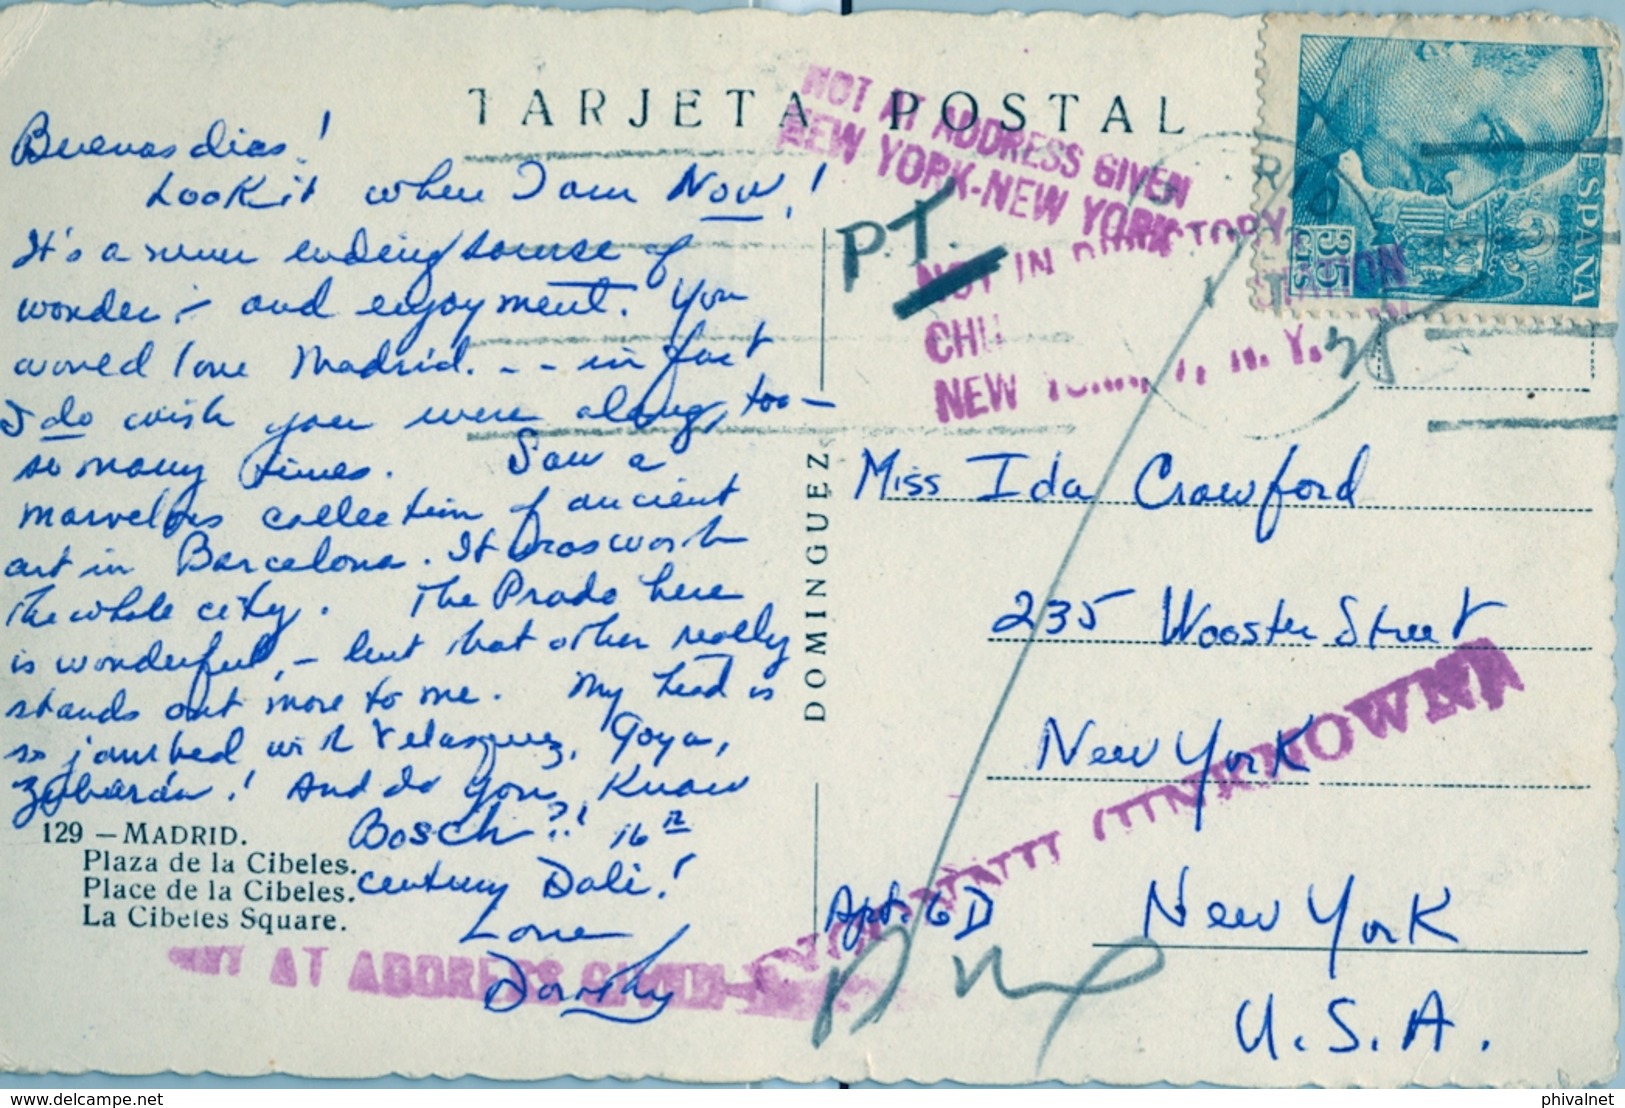 TARJETA POSTAL
Buenos dias!
Look it when I am Now!
It's a never ending source of
wonder - and enjoyment. You
would love Madrid. - - in fact
I do wish you were along, too -
so many times. Saw a
marvelous collection of ancient
art in Barcelona. It was worth
the whole city. The Prado here
is wonderful, - but that other really
stands out more to me. My head is
so jambed with Velasquez, Goya,
Zubarán! And do you know
Bosch?! 16th
century Dali!
Love
Dorothy
129 - MADRID.
Plaza de la Cibeles.
Place de la Cibeles.
La Cibeles Square.
DOMINGUEZ
NOT AT ADDRESS GIVEN
NEW YORK-NEW YORK
NOT IN DIRECTORY
STATION
NEW N. Y.
P.T.
ESPAÑA
35 CTS
Miss Ida Crawford
235 Wooster Street
New York
Apt. 6D New York
U.S.A.
(UNKNOWN)
AT ADDRESS GIVEN
delcampe.net
phivalnet